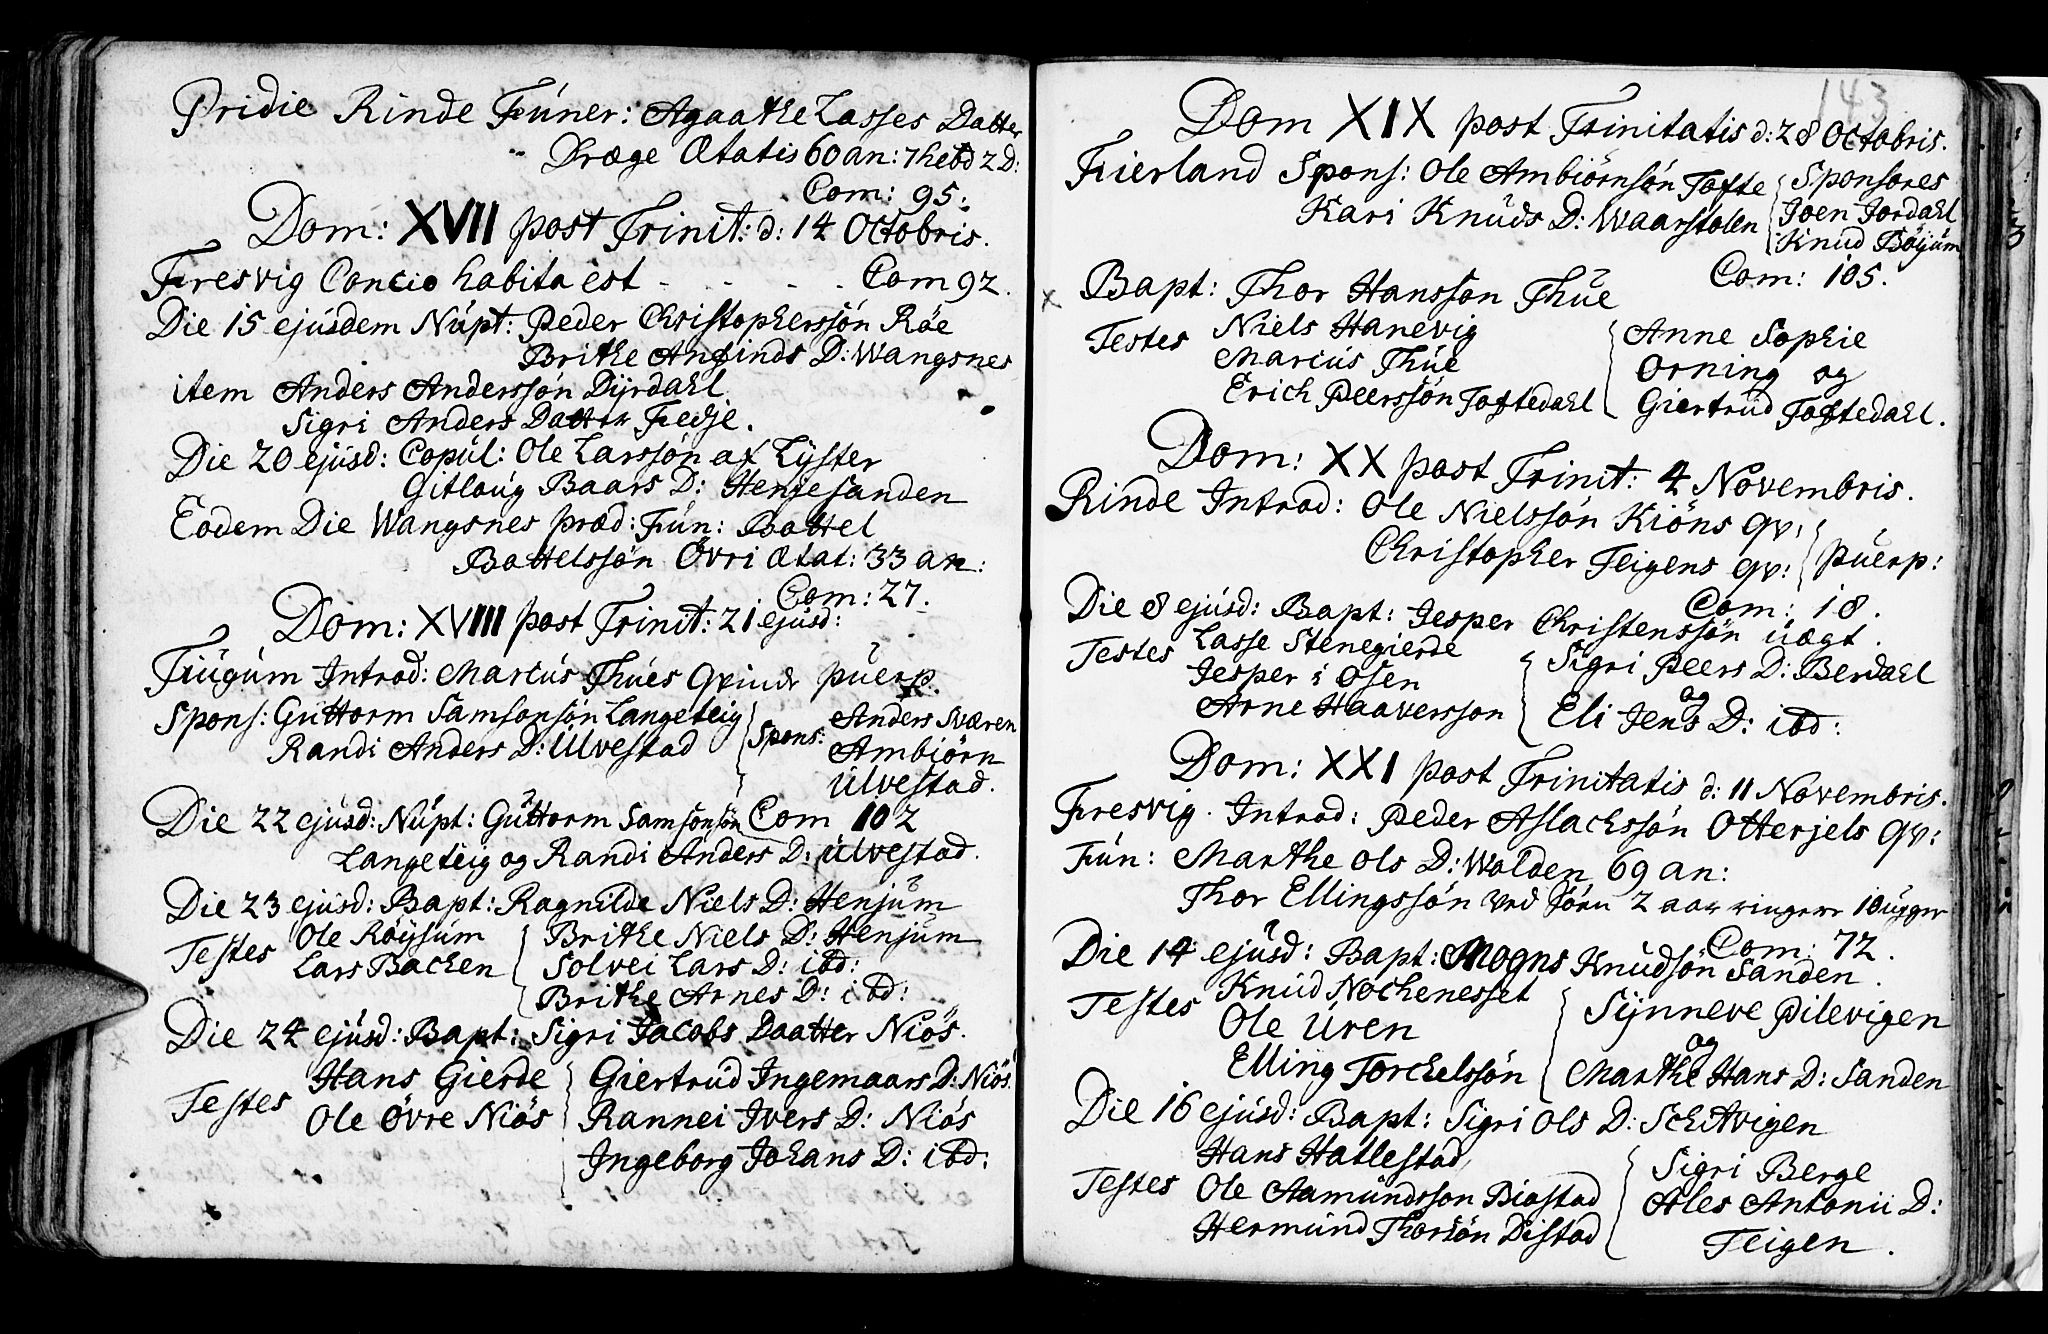 Pridie Rinde Fúner: Agaathe Lasses Datter
Dræge Ætatis 60 an: 7 hebd 2 D:
Com: 95.
Dom: XVII post Trinit: d: 14 Octobris.
Fresvig Concio habita est - - - - Com 92.
Die 15 ejúsdem Núpt: Peder Christopherssøn Røe
Brithe Anfinds D: Wangsnes
item Anders Anderssøn Dÿrdahl
Sigri Anders Datter Fedje.
Die 20 ejúsd: Copúl: Ole Larssøn af Lÿster
Gitloúg Baars D: Henjesanden
Eodem Die Wangsnes præd: Fún: Battel
Battelssøn Övri Ætat: 33 an:
Com: 27.
Dom: XVIII post Trinit: 21 ejusd:
Tiúgúm Introd: Marcús Thúes Qvinde púerp.
Spons: Guttorm Samsonsøn Langeteig
Randi Anders D: Úlvestad
Spons:
Anders Sværen
Ambiörn
Úlvestad.
Die 22 ejúsd: Núpt: Gúttorm Samsönsön Com 102
Langeteig og Randi Anders D: Úlvestad.
Die 23 ejusd: Bapt: Ragnilde Niels D: Henjúm
Testes
Ole Røÿsúm
Lars Backen
Brithe Niels D: Henjúm
Solvei Lars D: ibd:
Brithe Arnes D: ibd:
Die 24 ejúsd: Bapt: Sigri Jacobs Daatter Niös.
Testes
Hans Gierde
Ole Øvre Niös
Giertrúd Ingemaars D: Niös.
Rannei Ivers D: Niös
Ingeborg Johans D: ibd:
143
Dom XIX post Trinitatis d: 28 Octobris.
Fierland Spons: Ole Ambiörnsön Tofte
Kari Knúds D: Waarstolen
Sponsores
Joen Jordahl
Knud Böÿúm
Com: 105.
x Bapt: Thor Hansson Thúe
Testes
Niels Hanevig
Marcús Thúe
Erich Peerssön Toftedahl
Anne Sophie
Orning og
Giertrúd Toftedahl.
Dom: XX post Trinit: 4 Novembris.
Rinde Introd: Ole Nielssön Kiöns qv:
Christopher Teigens qv:
púerp:
Com: 18.
Die 8 ejúsd: Bapt: Jesper Christenssön úægt.
Testes
Lasse Stenegierde
Jesper i Osen
Arne Haaversson
Sigri Peers D: Berdahl
og
Eli Jens D: ibd:
Dom: XXI post Trinitatis d: 11 Novembris.
Fresvig. Introd: Peder Aslackssön Otterjels qv:
Fún: Marthe Ols D: Wolden 69 an:
Thor Ellingssön ved Söen 2 aar ringere 10 úgger
Com: 72.
Die 14 ejúsd: Bapt: Mogns Knúdsön Sanden.
Testes
Knúd Nochenesset
Ole Úren
Elling Torchelssön
Sÿnneve Pilevigen
og
Marthe Hans D: Sanden
Die 16 ejúsd: Bapt: Sigri Ols D: Schitvigen
Testes
Hans Hatlestad
Ole Aamúndsson Biastad
Hermúnd Thorsön Distad
Sigri Berge
Ales Antonii D:
Teigen.